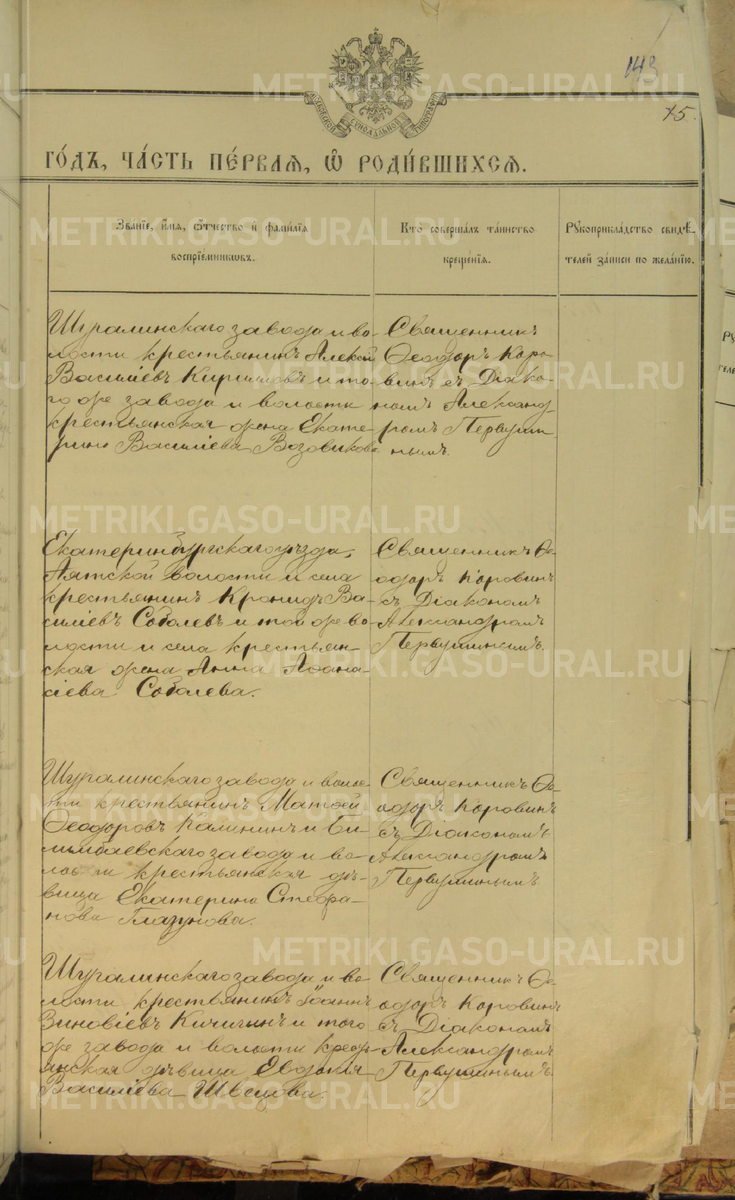 143
75.
МОСКОВСКОЙ СѴНОДАЛЬНОЙ ТИПОГРАФІИ
ГО́ДЪ, ЧА́СТЬ ПЕ́РВАЯ, Ѽ РОДИ́ВШИХСЯ.
Зва́нїе, и́мя, ѻ҆́тчество и҆ фами́лїя
воспрїе́мникѡвъ.
Кто̀ соверша́лъ та́инство
креще́нїя.
Рꙋкоприкла́дство свидѣ́-
телей за́писи по жела́нїю.
Шуралинскаго завода и во-
лости крестьянинъ Алексѣй
Васильевъ Кирилловъ и то-
го же завода и волости
крестьянская жена Екате-
рина Васильева Возовикова
Священникъ
Ѳеодоръ Коро-
винъ съ Діако-
номъ Александ-
ромъ Первуши-
нымъ.
Екатеринбургскаго уѣзда,
Аятской волости и села
крестьянинъ Кронидъ Ва-
силіевъ Соболевъ и той же во-
лости и села крестьян-
ская жена Анна Аѳана-
сіева Соболева.
Священникъ Ѳе-
одоръ Коровинъ
съ Діакономъ
Александромъ
Первушинымъ.
Шуралинскаго завода и воло-
сти крестьянинъ Матѳей
Ѳеодоровъ Калининъ и Би-
лимбаевскаго завода и во-
лости крестьянская дѣ-
вица Екатерина Стефа-
нова Глазунова.
Священникъ Ѳе-
одоръ Коровинъ
съ Діакономъ
Александромъ
Первушинымъ
Шуралинскаго завода и во-
лости крестьянинъ Іоаннъ
Зиновіевъ Кичигинъ и того
же завода и волости крестья-
янская дѣвица Евдокія
Василіева Швецова.
Священникъ Ѳе-
одоръ Коровинъ
съ Діакономъ
Александромъ
Первушинымъ.
METRIKI.GASO-URAL.RU